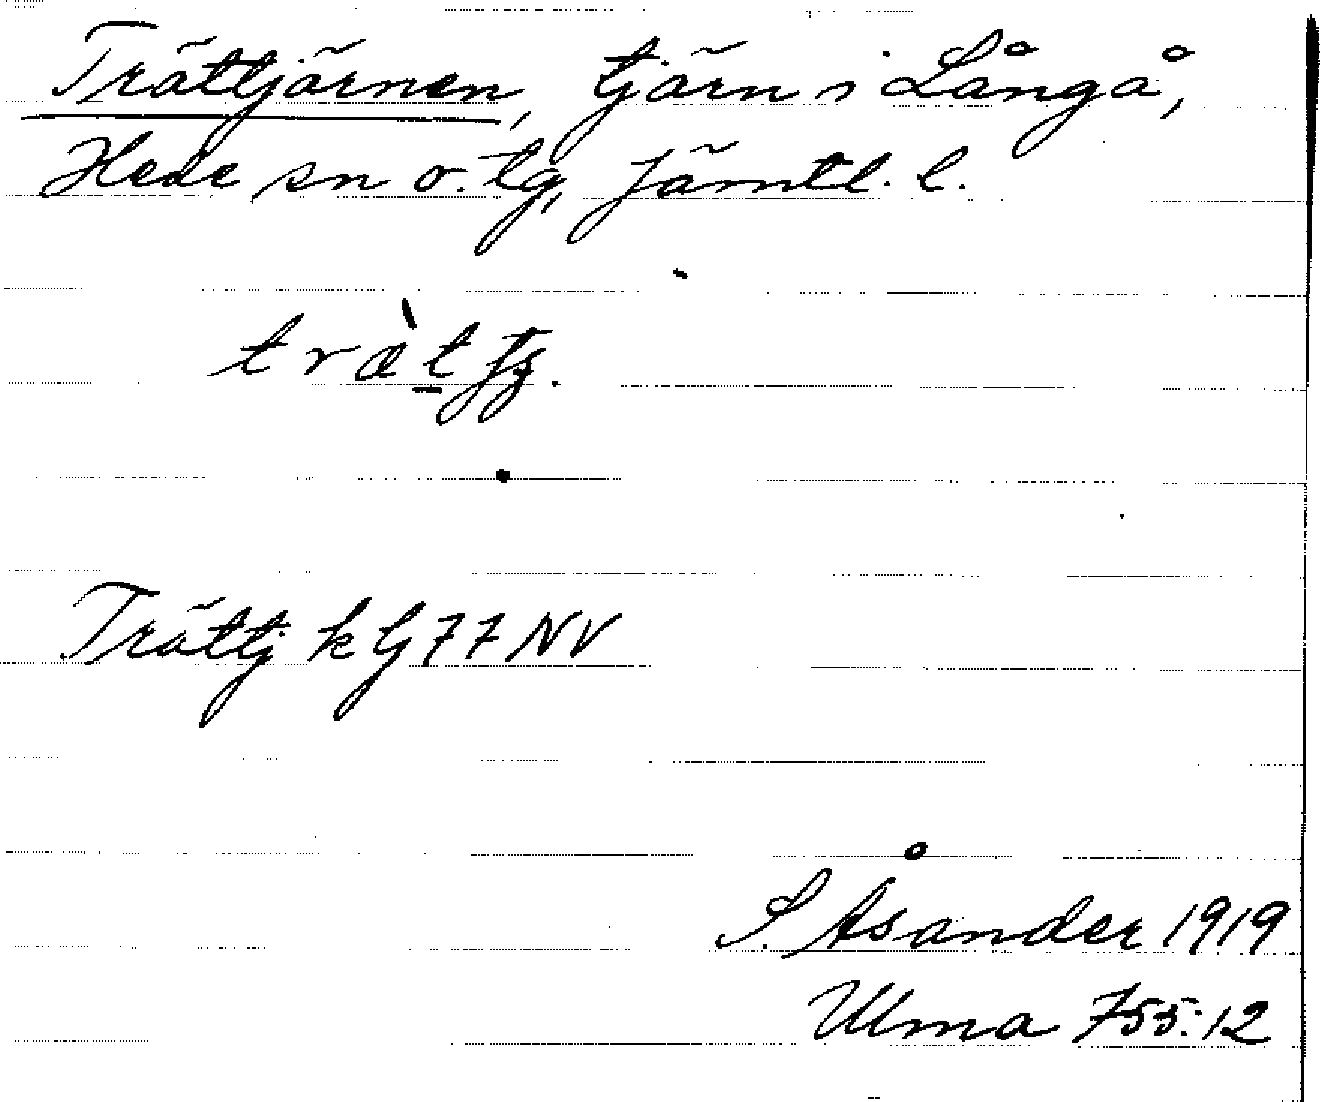 Trättjärnen, tjärn i Långå,
Hede sn o. tg, Jämtl. l.
Trättj k G 77 NV
S. Åsander 1919
Ulma 755:12